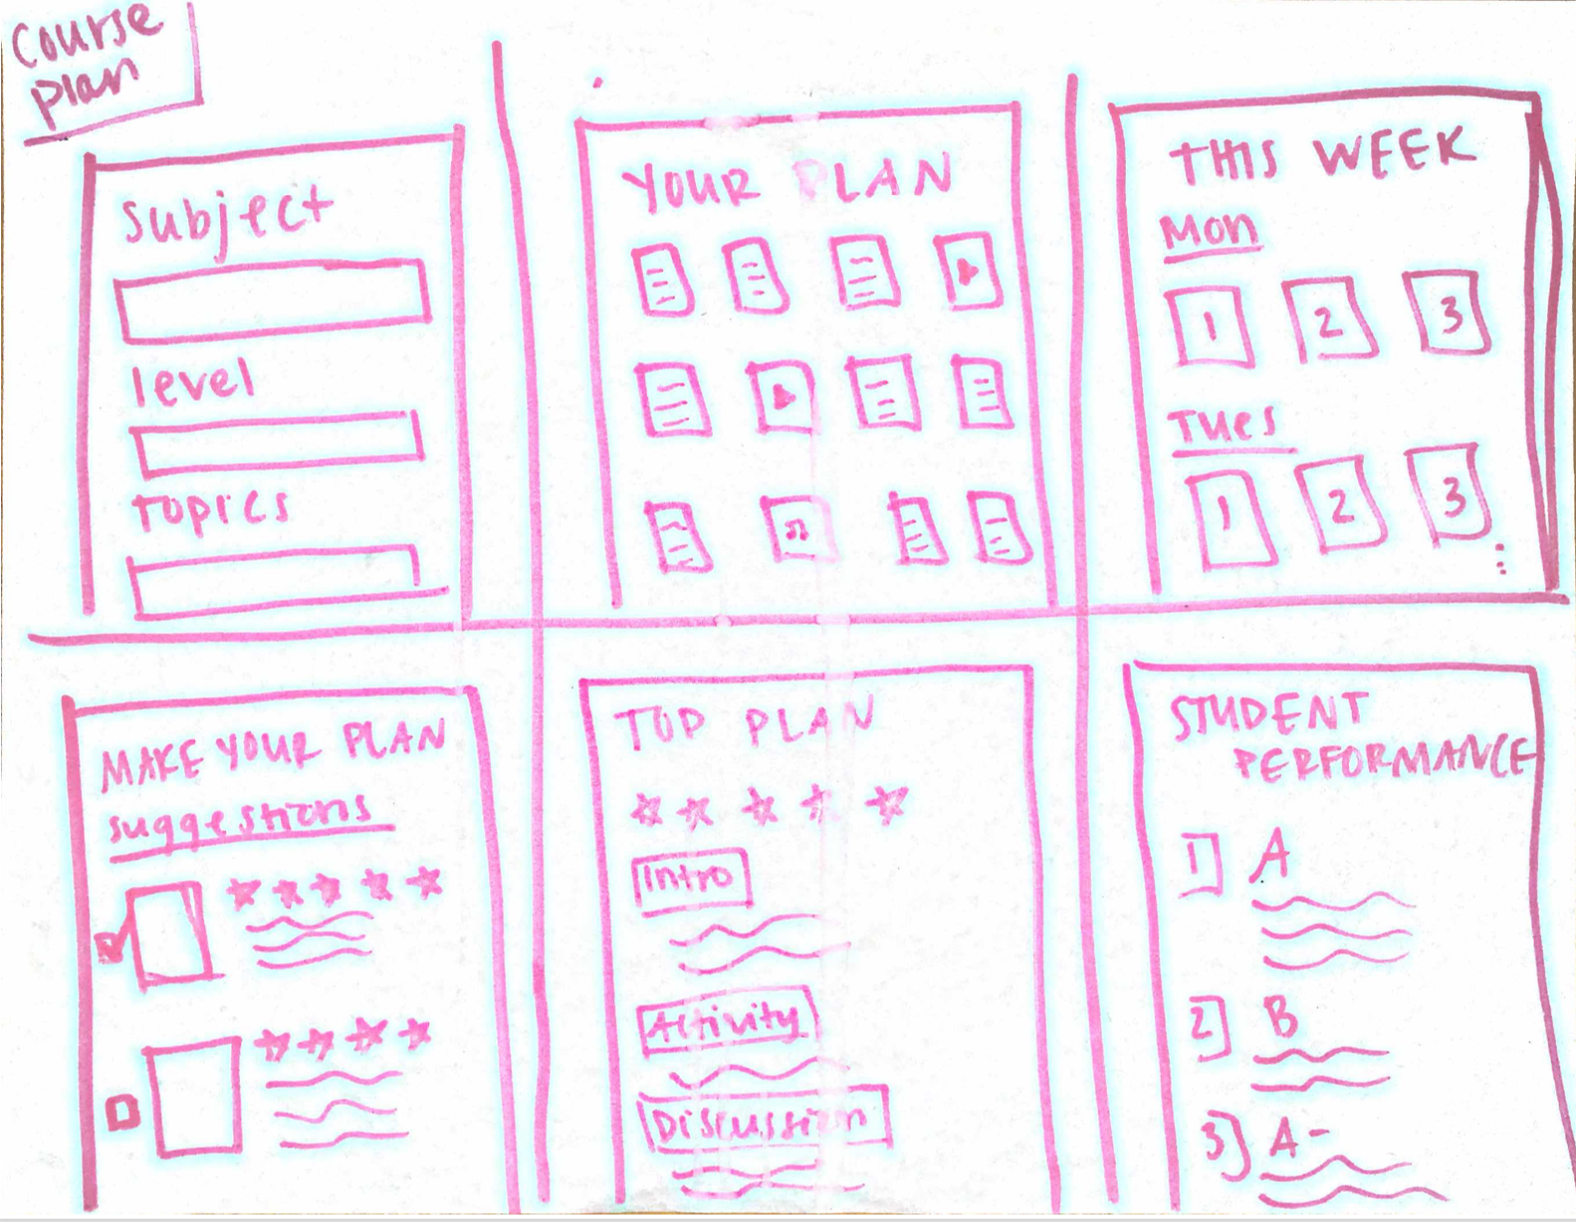 Course
plan
subject
level
topics
YOUR PLAN
THIS WEEK
Mon
1 2 3
Tues
1 2 3
MAKE YOUR PLAN
suggestions
TOP PLAN
Intro
Activity
Discussion
STUDENT
PERFORMANCE
1 A
2 B
3 A-